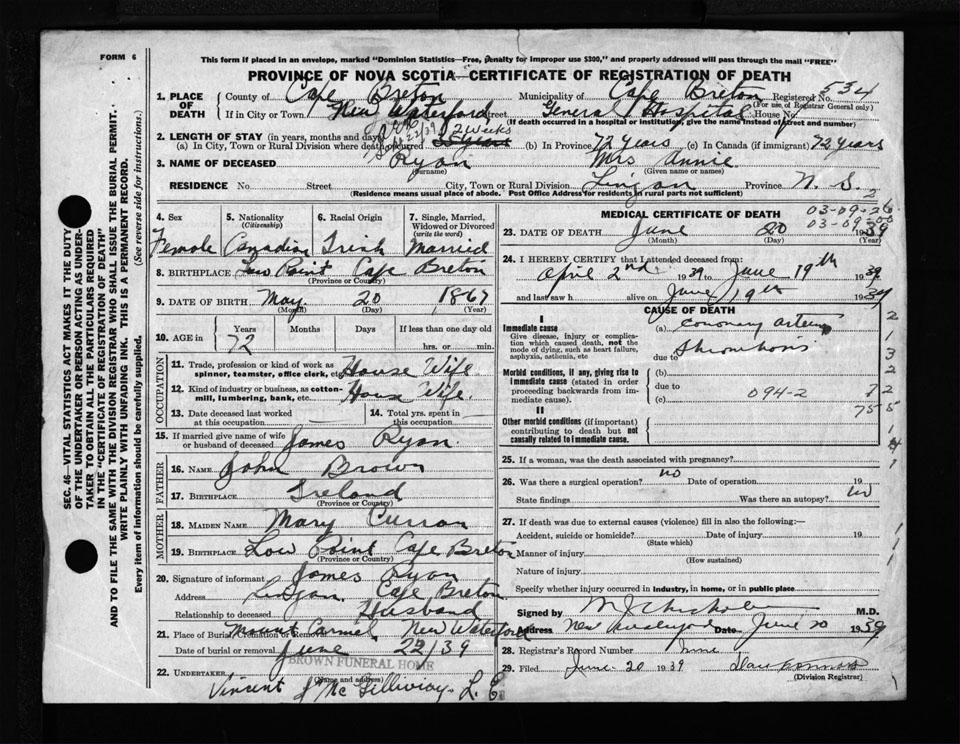 FORM 6
This form if placed in an envelope, marked "Dominion Statistics—Free, penalty for improper use $300," and properly addressed will pass through the mail "FREE"
PROVINCE OF NOVA SCOTIA—CERTIFICATE OF REGISTRATION OF DEATH
534
1. PLACE OF DEATH County of Cape Breton Municipality of Cape Breton Registered No.
(For use of Registrar General only)
If in City or Town New Waterford Street General Hospital House No.
(If death occurred in a hospital or institution, give the name instead of street and number)
2. LENGTH OF STAY (in years, months and days) 2 weeks
(a) In City, Town or Rural Division where death occurred (b) In Province 72 years (c) In Canada (if immigrant) 72 years
3. NAME OF DECEASED Ryan Mrs Annie
(Surname) (Given name or names)
RESIDENCE No. Street City, Town or Rural Division Lingan Province N. S.
(Residence means usual place of abode. Post Office Address for residents in rural parts not sufficient)
4. Sex 5. Nationality (Citizenship) 6. Racial Origin 7. Single, Married, Widowed or Divorced (write the word)
Female Canadian Irish Married
8. BIRTHPLACE Low Point Cape Breton
(Province or Country)
9. DATE OF BIRTH May 20 1867
(Month) (Day) (Year)
10. AGE in Years Months Days If less than one day old
72 hrs. or min.
OCCUPATION
11. Trade, profession or kind of work as spinner, teamster, office clerk, etc. House Wife
12. Kind of industry or business, as cotton-mill, lumbering, bank, etc. House Wife.
13. Date deceased last worked at this occupation
14. Total yrs. spent in this occupation
15. If married give name of wife or husband of deceased James Ryan.
FATHER
16. NAME John Brown
17. BIRTHPLACE Ireland
(Province or Country)
MOTHER
18. MAIDEN NAME Mary Curran
19. BIRTHPLACE Low Point Cape Breton
(Province or Country)
20. Signature of informant James Ryan
Address Lingan Cape Breton
Relationship to deceased Husband
21. Place of Burial, Cremation or Removal Mount Carmel New Waterford
Date of burial or removal June 22/39
BROWN FUNERAL HOME
22. UNDERTAKER
(Name and address)
Vincent J McGillivray
MEDICAL CERTIFICATE OF DEATH
03-09-26
03-09-00
23. DATE OF DEATH June 20 1939
(Month) (Day) (Year)
24. I HEREBY CERTIFY that I attended deceased from:
April 2nd 1939 to June 19th 1939
and last saw h alive on June 19th 1939
CAUSE OF DEATH
I
Immediate cause
Give disease, injury or complication which caused death, not the mode of dying, such as heart failure, asphyxia, asthenia, etc
(a) Coronary artery
due to Thrombosis
Morbid conditions, if any, giving rise to immediate cause (stated in order proceeding backwards from immediate cause).
(b)
due to
(c) 094-2
II
Other morbid conditions (if important) contributing to death but not causally related to immediate cause.
25. If a woman, was the death associated with pregnancy?
26. Was there a surgical operation? no Date of operation 19
State findings Was there an autopsy? no
27. If death was due to external causes (violence) fill in also the following:—
Accident, suicide or homicide? Date of injury 19
(State which)
Manner of injury
(How sustained)
Nature of injury
Specify whether injury occurred in Industry, in home, or in public place
Signed by M.D.
Address New Waterford Date June 20 1939
28. Registrar's Record Number
29. Filed June 20 1939
(Division Registrar)
SEC. 46—VITAL STATISTICS ACT MAKES IT THE DUTY
OF THE UNDERTAKER OR PERSON ACTING AS UNDERTAKER TO OBTAIN ALL THE PARTICULARS REQUIRED
IN THE "CERTIFICATE OF REGISTRATION OF DEATH"
AND TO FILE THE SAME WITH THE DIVISION REGISTRAR WHO SHALL ISSUE THE BURIAL PERMIT.
WRITE PLAINLY WITH UNFADING INK. THIS IS A PERMANENT RECORD.
Every item of information should be carefully supplied. (See reverse side for instructions.)